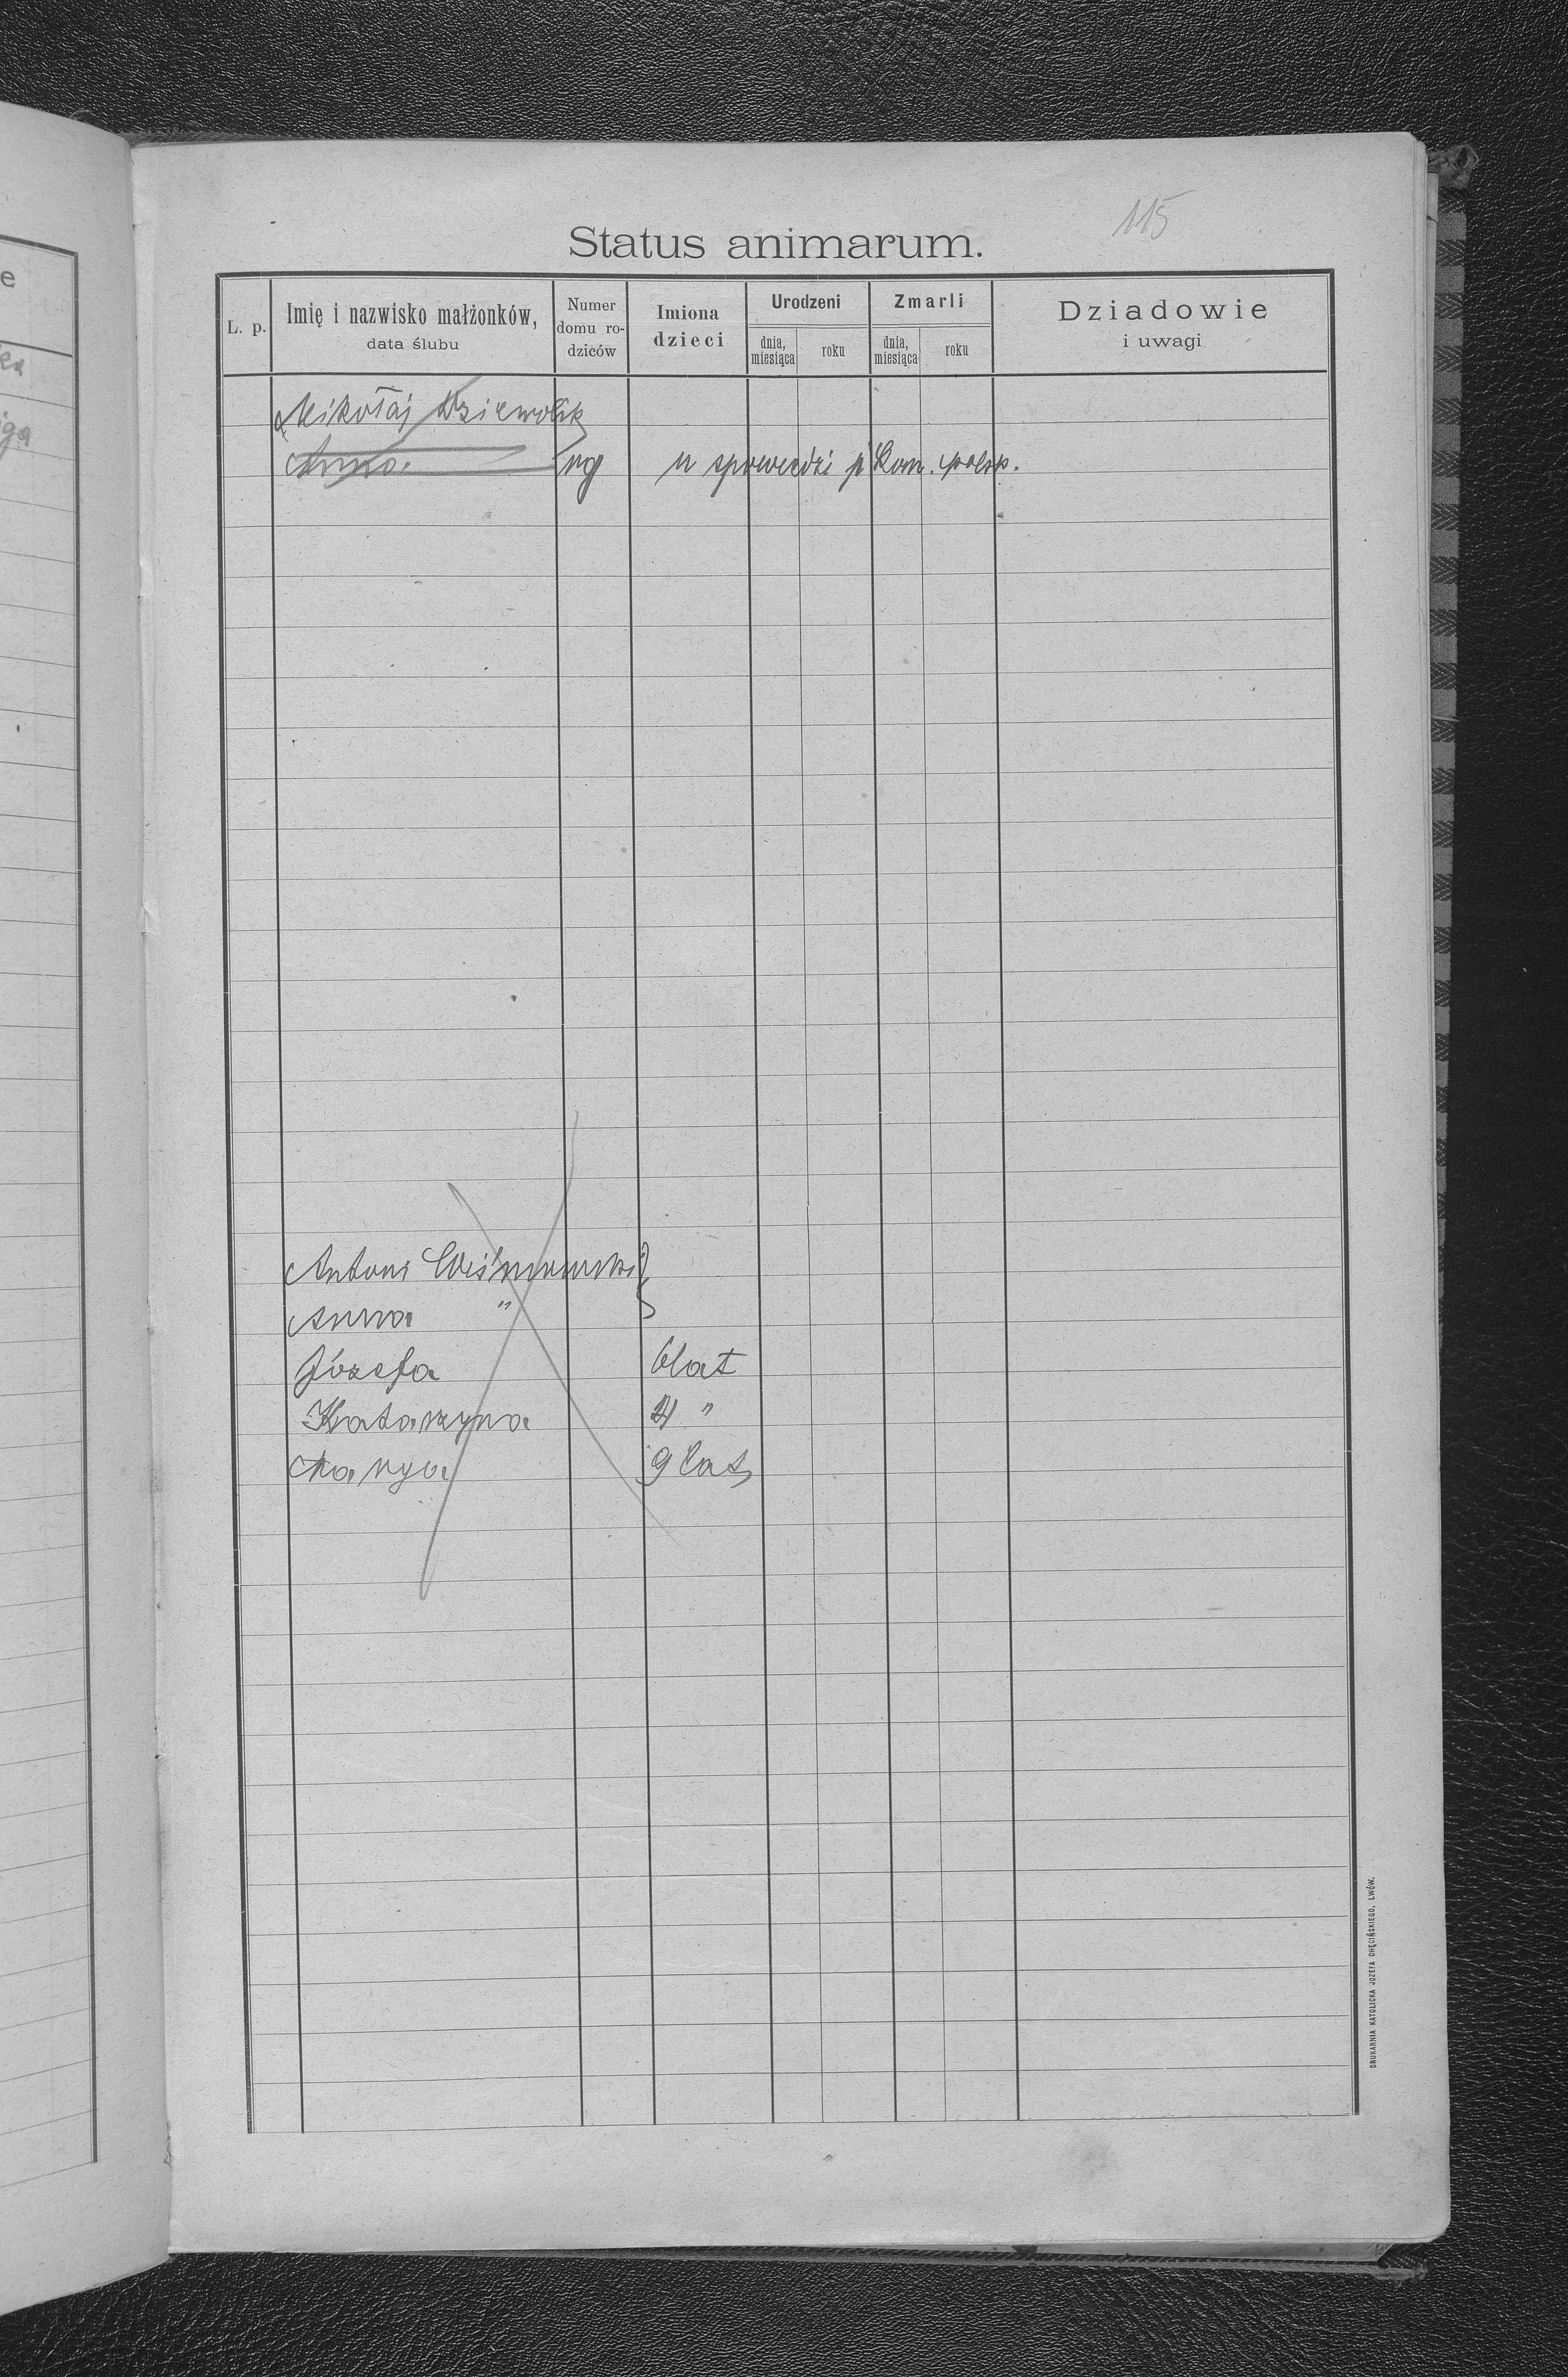 115
Status animarum.
L. p.
Imię i nazwisko małżonków,
data ślubu
Numer
domu ro-
dziców
Imiona
dzieci
Urodzeni
dnia,
miesiąca
roku
Zmarli
dnia,
miesiąca
roku
Dziadowie
i uwagi
Mikołaj
Anna
u spowiedzi
Antoni Wiśniewski
Anna "
Józefa 6 lat
Katarzyna 4 "
Marya 9 lat
DRUKARNIA KATOLICKA JOZEFA CHĘCIŃSKIEGO, LWÓW.